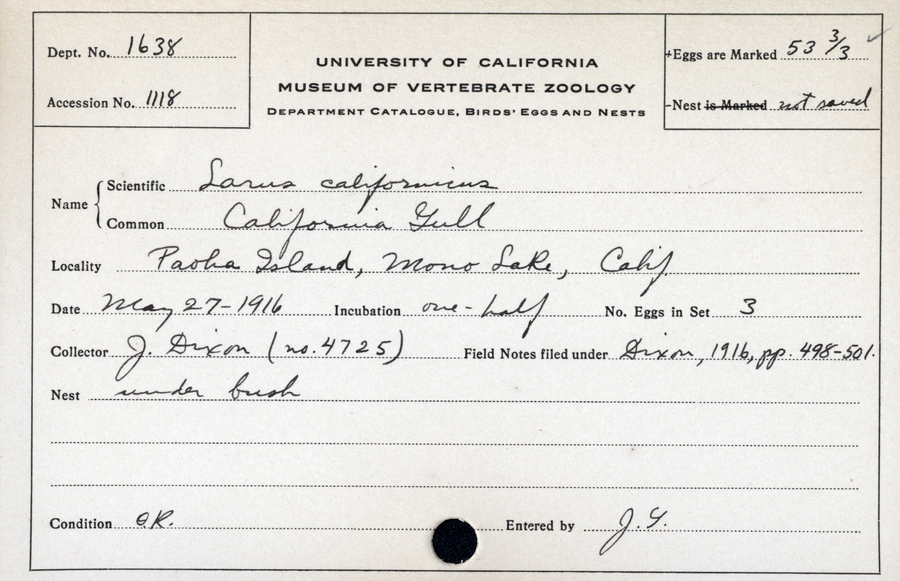 Dept. No. 1638
Accession No. 1118
UNIVERSITY OF CALIFORNIA
MUSEUM OF VERTEBRATE ZOOLOGY
DEPARTMENT CATALOGUE, BIRDS' EGGS AND NESTS
+Eggs are Marked 53 3/3 ✓
-Nest is Marked not saved
Name
Scientific Larus californicus
Common California Gull
Locality Paoha Island, Mono Lake, Calif.
Date May 27-1916 Incubation one-half No. Eggs in Set 3
Collector J. Dixon (no. 4725) Field Notes filed under Dixon, 1916, pp. 498-501.
Nest under bush
Condition O.K. Entered by J.G.